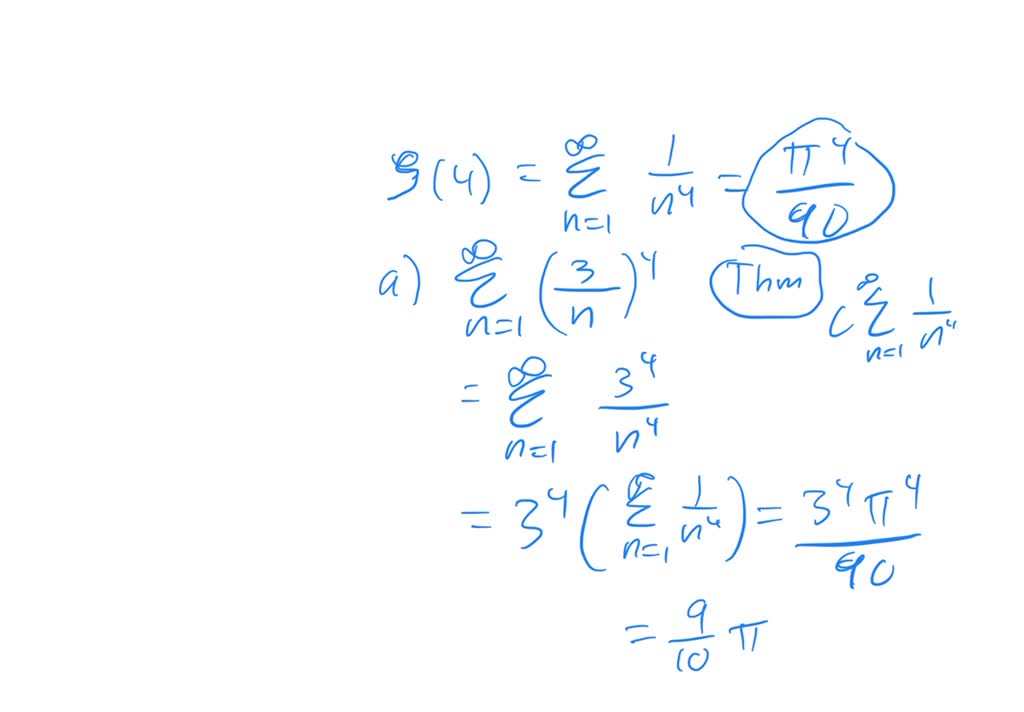 ζ(4) = ∑_{n=1}^{∞} 1/n⁴ = π⁴/90
a) ∑_{n=1}^{∞} (3/n)⁴ Thm c ∑_{n=1}^{∞} 1/n⁴
= ∑_{n=1}^{∞} 3⁴/n⁴
= 3⁴ (∑_{n=1}^{∞} 1/n⁴) = 3⁴π⁴/90
= 9/10 π